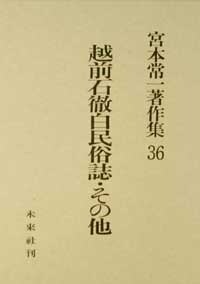 宮本常一著作集
36
越前石徹白民俗誌・その他
未来社刊